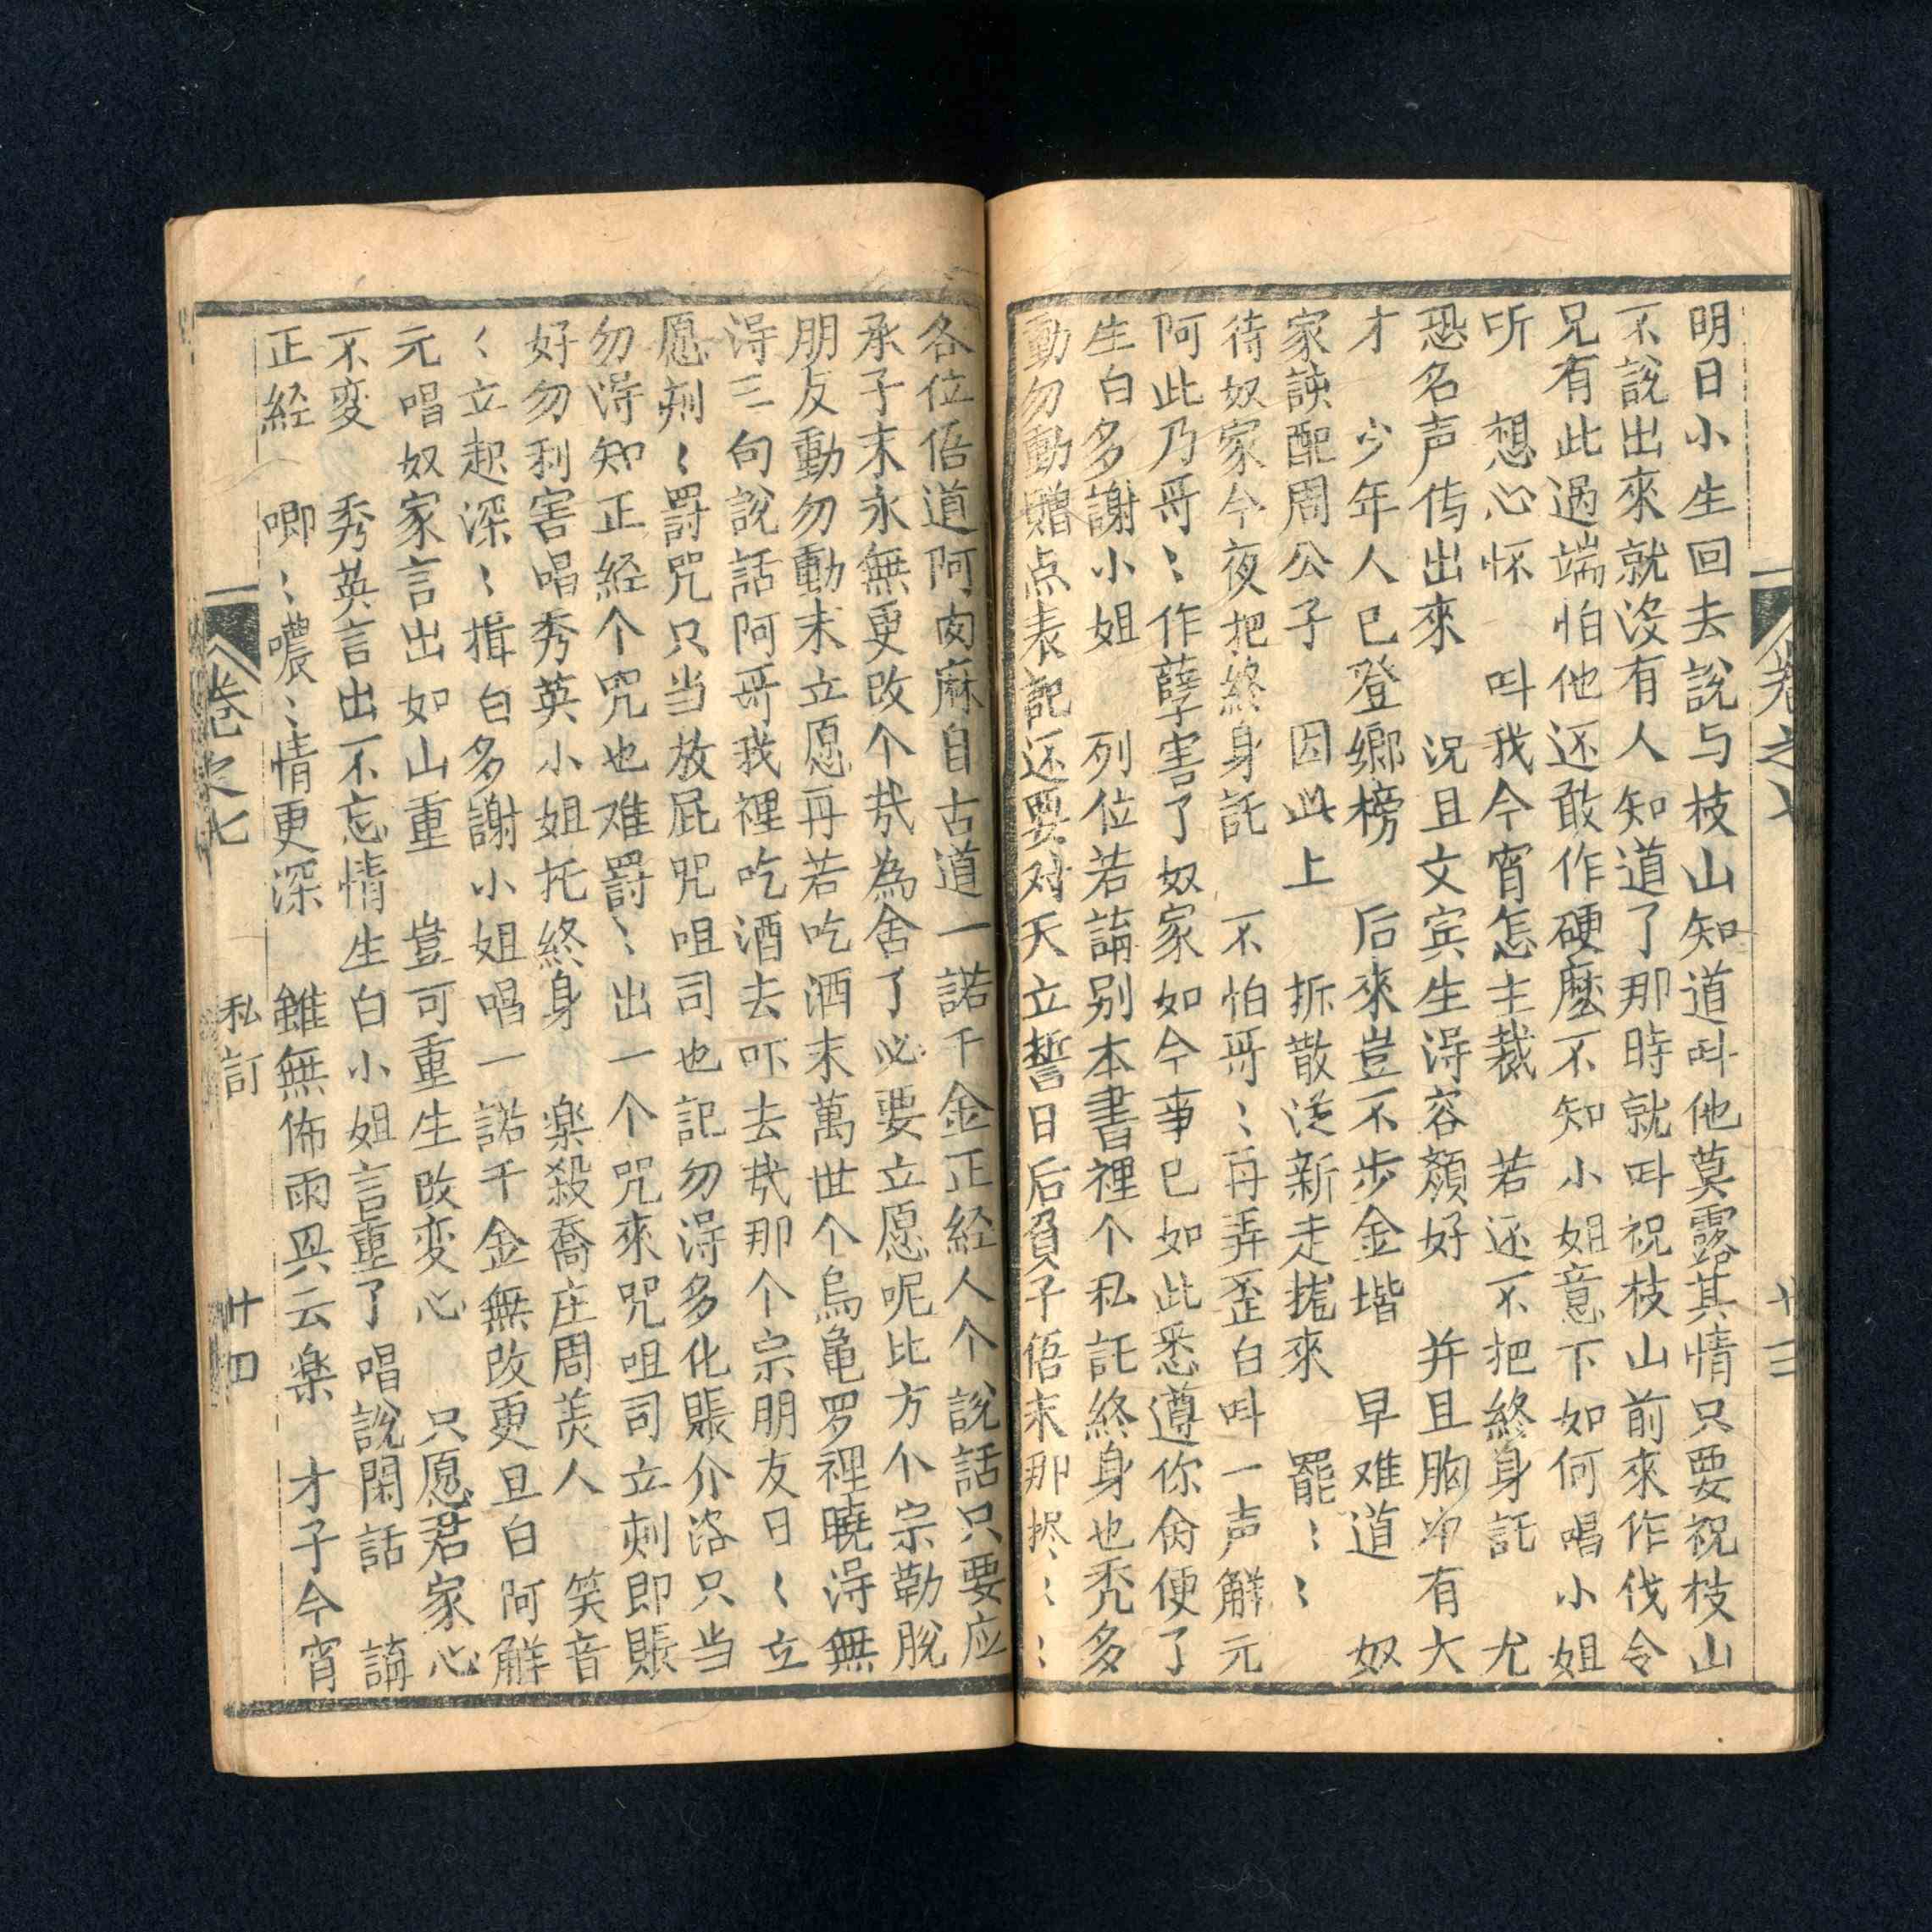 卷之七
明日小生回去說与枝山知道呌他莫露其情只要祝枝山
不說出來就沒有人知道了那時就呌祝枝山前來作伐令
兄有此過端怕他还敢作硬麼不知小姐意下如何唱小姐
听 想心怀 呌我今宵怎主裁 若还不把終身託 尤
恐名声传出來 况且文宾生淂容顏好 并且胸中有大
才 少年人已登鄉榜 后來豈不步金堦 早难道 奴
家許配周公子 因此上 拆散從新走攏來 罷〻〻
待奴家今夜把終身託 不怕哥〻再弄歪白呌一声觧元
阿此乃哥〻作孽害了奴家如今事已如此悉遵你俏便了
生白多謝小姐 列位若論别本書裡个私託終身也禿多
動勿動贈点表記还要对天立誓日后負子偣末那挘〻〻
各位偣道阿肉麻自古道一諾千金正経人个說話只要应
承子末永無更改个㢤為舍了必要立愿呢比方个宗勒脫
朋友動勿動末立愿再若吃酒末萬世个烏龜罗裡曉淂無
淂三句說話阿哥我裡吃酒去吓去㢤那个宗朋友日〻立
愿刻〻罸咒只当放屁咒咀司也記勿淂多化賬介洛只当
勿淂知正経个咒也难罸〻出一个咒來咒咀司立刻即賬
好勿利害唱秀英小姐托終身 楽殺喬庄周羙人 笑音
〻立起深〻揖白多謝小姐唱一諾千金無改更旦白阿觧
元唱奴家言出如山重 豈可重生改变心 只愿君家心
不变 秀英言出不忘情生白小姐言重了唱說閑話 講
正経 唧〻噥〻情更深 雖無佈雨與云楽 才子今宵
卷之七 私訂 廿四